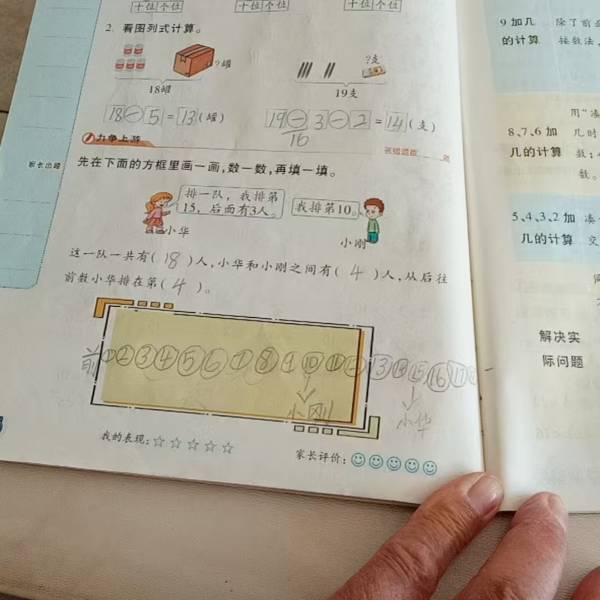 十位 个位
十位 个位
十位 个位
2. 看图列式计算。
?罐
18罐
?支
19支
18 - 5 = 13 (罐)
19 - 3 - 2 = 14 (支)
16
力争上游
家长出题
先在下面的方框里画一画,数一数,再填一填。
排一队,我排第
15,后面有3人。
我排第10。
小华
小刚
这一队一共有( 18 )人,小华和小刚之间有( 4 )人,从后往
前数小华排在第( 4 )。
前 ① ② ③ ④ ⑤ ⑥ ⑦ ⑧ ⑨ ⑩ ⑪ ⑫ ⑬ ⑭ ⑮ ⑯ ⑰ ⑱
小刚
小华
我的表现: ☆☆☆☆☆
家长评价:
9 加几
的计算
除了前
接数法,
用“凑
8、7、6 加
几的计算
几时
数;
数。
5、4、3、2 加
几的计算
凑
交
解决实
际问题